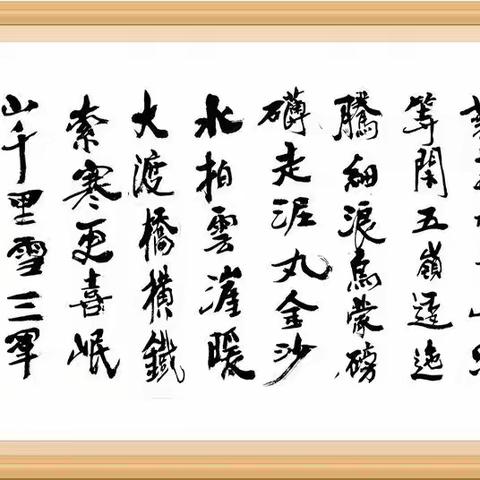 等閑五嶺逶迤
騰細浪烏蒙磅
礴走泥丸金沙
水拍雲漄暖
大渡橋橫鐵
索寒更喜岷
山千里雪三軍